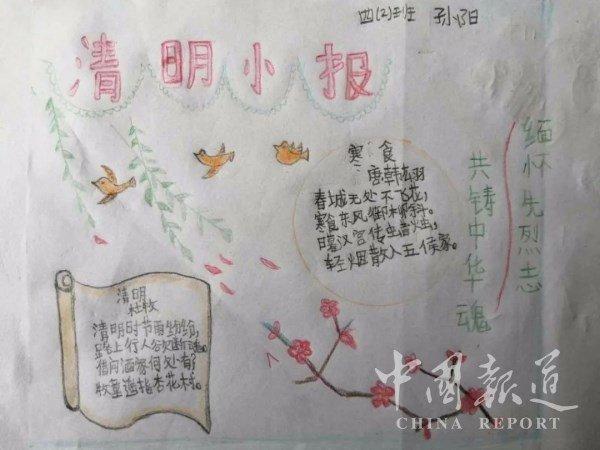 四(2)班 孙
清明小报
寒食
唐 韩翃
春城无处不飞花,
寒食东风御柳斜。
日暮汉宫传虫昔烛,
轻烟散入五侯家。
缅怀先烈志
共铸中华魂
清明
杜牧
清明时节雨纷纷,
路上行人欲断魂。
借问酒家何处有?
牧童遥指杏花村。
中国报道
CHINA REPORT